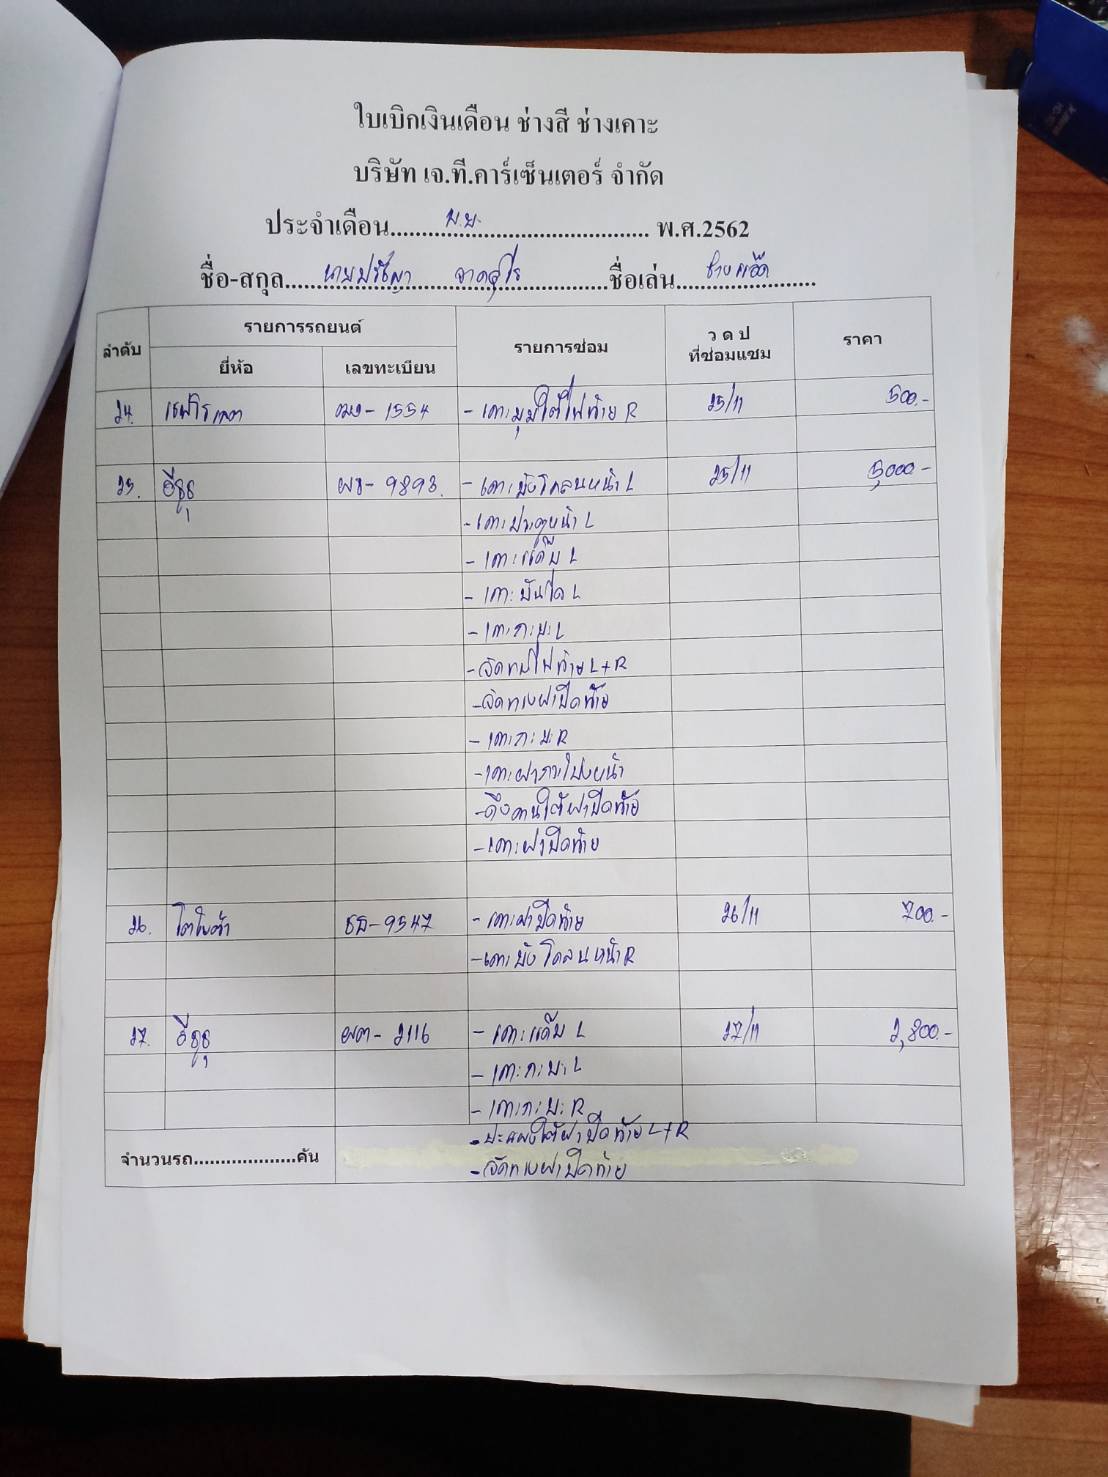 ใบเบิกเงินเดือน ช่างสี ช่างเคาะ
บริษัท เจ.ที.คาร์เซ็นเตอร์ จำกัด
ประจำเดือน.......... พ.ย. .......... พ.ศ.2562
ชื่อ-สกุล.......... นายปรัชญา .......... ชื่อเล่น.......... ช่าง
ลำดับ รายการรถยนต์ รายการซ่อม ว ด ป ที่ซ่อมแซม ราคา
ยี่ห้อ เลขทะเบียน
24. เชฟโรเลต - 1554 - เคาะมุมใต้ไฟท้าย R 25/11 500.-
25. อีซูซุ ผร - 9893. - เคาะบังโคลนหน้า L 25/11 5,000 -
- เคาะประตูหน้า L
- เคาะแค๊ป L
- เคาะบันได L
- เคาะกะบะ L
- จัดทรงไฟท้าย L+R
- จัดทรงฝาปิดท้าย
- เคาะกะบะ R
- เคาะฝากระโปรงหน้า
- ดึงคานใต้ฝาปิดท้าย
- เคาะฝาปิดท้าย
26. โตโยต้า ธฉ - 9547 - เคาะฝาปิดท้าย 26/11 700.-
- เคาะบังโคลนหน้า R
27. อีซูซุ ผต - 2116 - เคาะแค๊ป L 27/11 2,800.-
- เคาะกะบะ L
- เคาะกะบะ R
- ปะแผงใต้ฝาปิดท้าย L+R
จำนวนรถ....................คัน
- จัดทรงฝาปิดท้าย